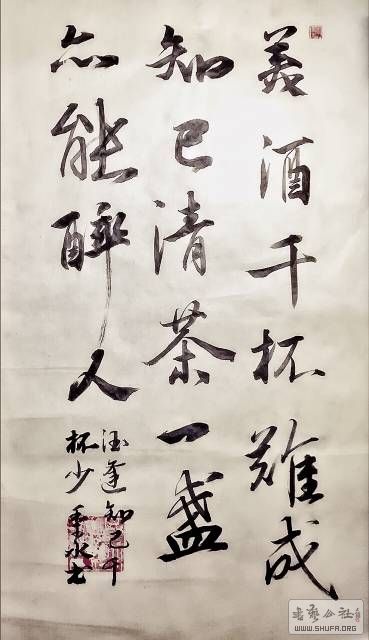 美酒千杯難成
知己清茶一盏
亦能醉人
酒逢知己千
杯少
书艺公社
WWW.SHUFA.ORG